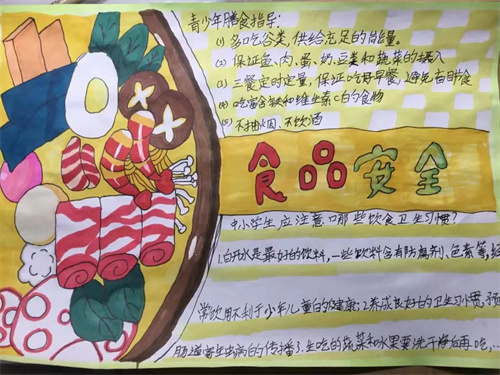 青少年膳食指导:
(1) 多吃谷类,供给充足的能量。
(2) 保证鱼、肉、蛋、奶、豆类和蔬菜的摄入
(3) 三餐定时定量,保证吃好早餐,避免盲目节食
(4) 吃富含铁和维生素C的食物
(5) 不抽烟、不饮酒
食品安全
中小学生应注意哪些饮食卫生习惯?
1.白开水是最好的饮料,一些饮料含有防腐剂、色素等,经
常饮用不利于少年儿童的健康;2.养成良好的卫生习惯,预
肠道寄生虫病的传播3.生吃的蔬菜和水果要洗干净后再吃,…